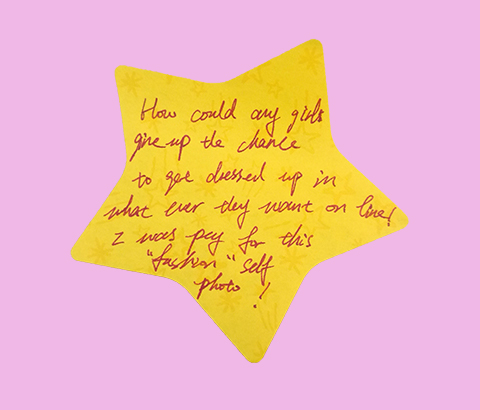 How could any girls
give up the chance
to get dressed up in
what ever they want on line!
I was pay for this
"fashion" self
photo!